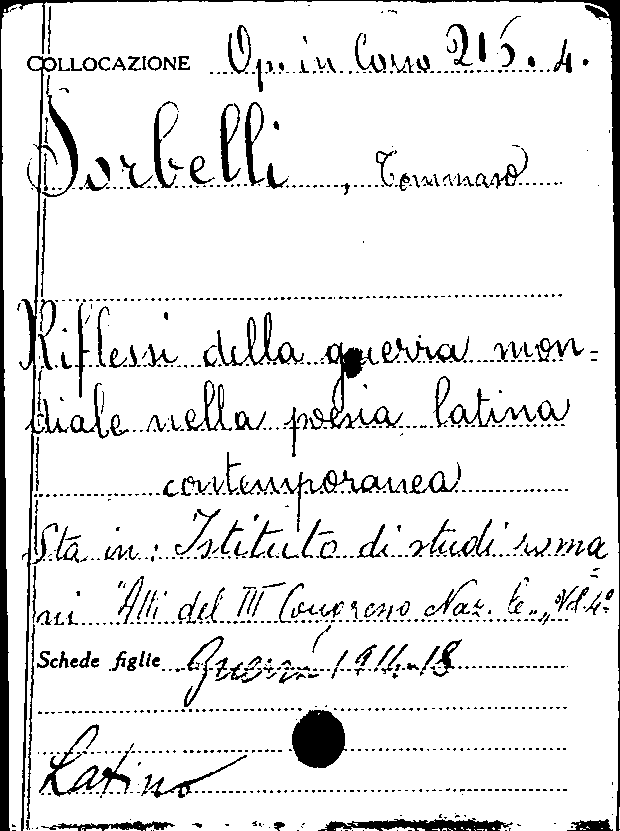 COLLOCAZIONE Op. in Corso 215. 4.
Sorbelli, Tommaso
Riflessi della guerra mon=
diale nella poesia latina
contemporanea
Sta in: Istituto di studi roma=
ni "Atti del III Congresso Naz. le„ Vol 4º
Schede figlie Guerra 1914-18
Latino